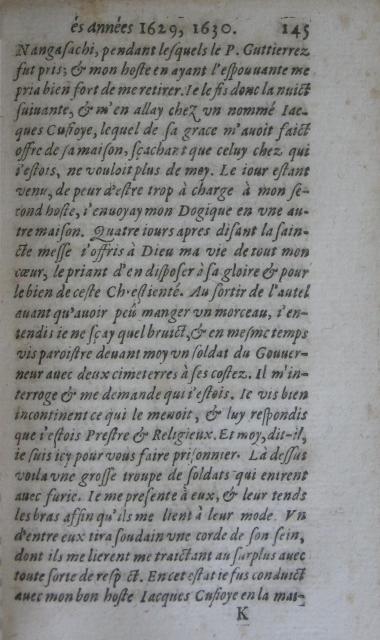 és années 1629, 1630. 145
Nangasachi, pendant lesquels le P. Guttierrez
fut pris; & mon hoste en ayant l'espouuante me
pria bien fort de me retirer. Ie le fis donc la nuict
suiuante, & m'en allay chez vn nommé Iac-
ques Cusioye, lequel de sa grace m'auoit faict
offre de sa maison, sçachant que celuy chez qui
i'estois, ne vouloit plus de moy. Le iour estant
venu, de peur d'estre trop à charge à mon se-
cond hoste, i'enuoyay mon Dogique en vne au-
tre maison. Quatre iours apres disant la sain-
cte messe i'offris à Dieu ma vie de tout mon
cœur, le priant d'en disposer à sa gloire & pour
le bien de ceste Chrestienté. Au sortir de l'autel
auant qu'auoir peû manger vn morceau, i'en-
tendis ie ne sçay quel bruict, & en mesme temps
vis paroistre deuant moy vn soldat du Gouuer-
neur auec deux cimeterres à ses costez. Il m'in-
terroge & me demande qui i'estois. Ie vis bien
incontinent ce qui le menoit, & luy respondis
que i'estois Prestre & Religieux. Et moy, dit-il,
ie suis icy pour vous faire prisonnier. Là dessus
voila vne grosse troupe de soldats qui entrent
auec furie. Ie me presente à eux, & leur tends
les bras affin qu'ils me lient à leur mode. Vn
d'entre eux tira soudain vne corde de son sein,
dont ils me lierent me traictant au surplus auec
toute sorte de resp ct. En cet estat ie fus conduict
auec mon bon hoste Iacques Cusioye en la mai-
K